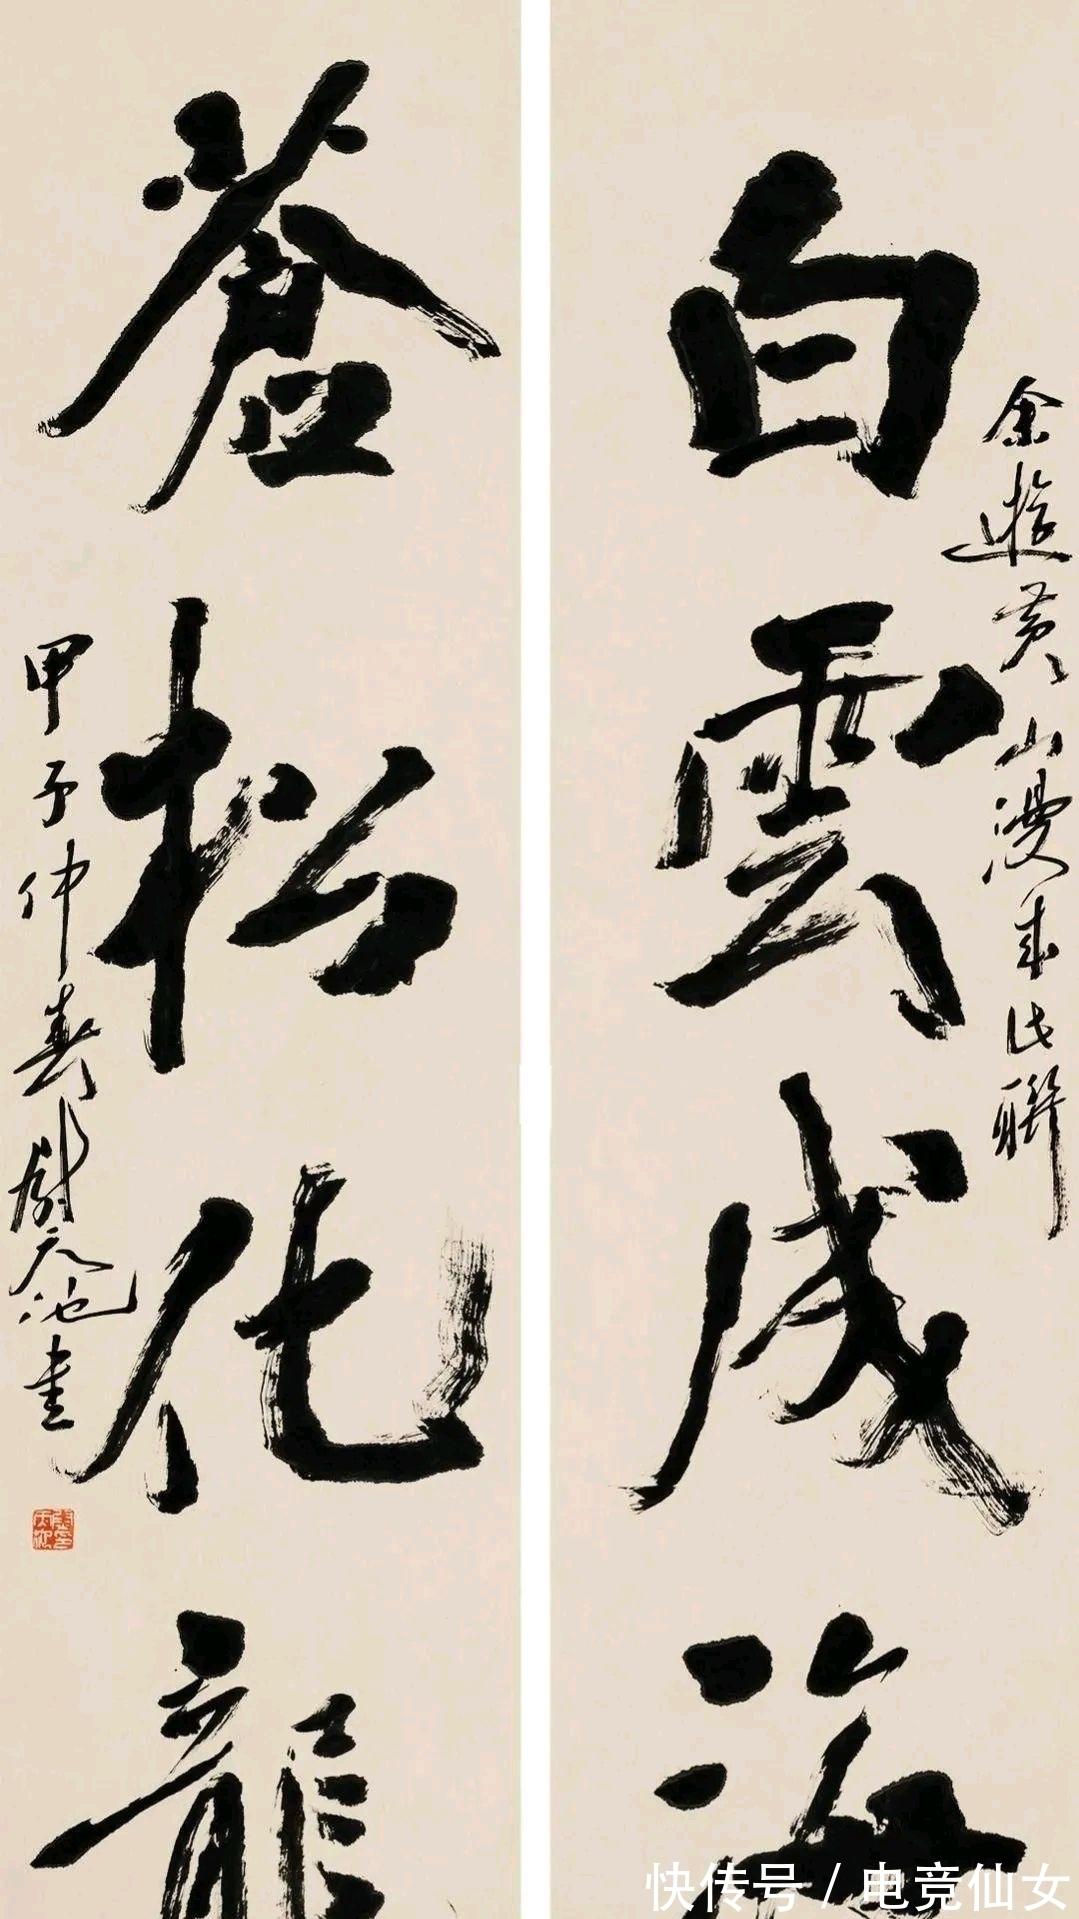 白雲成海
余遊黄山漫成此聯
蒼松化龍
甲子仲春尉天池書
快传号/电竞仙女